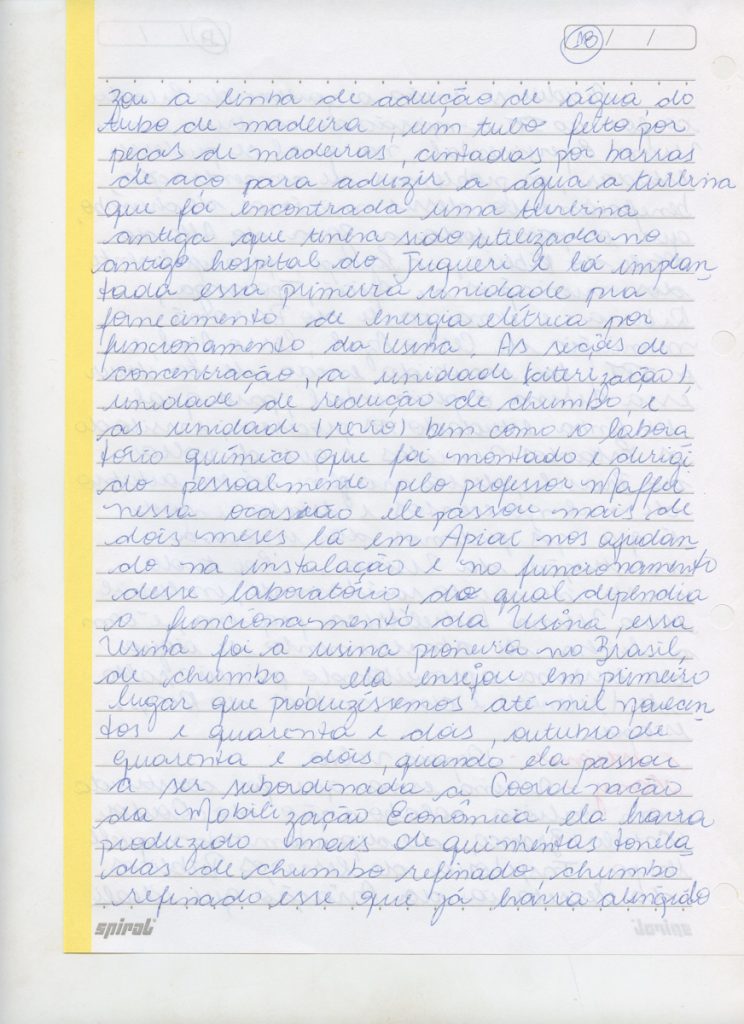 18 / /
zou a linha de adução de água do
tubo de madeira, um tubo feito por
peças de madeiras, cintadas por barras
de aço para aduzir a água a turbina
que foi encontrada uma turbina
antiga que tinha sido utilizada no
antigo hospital do Juqueri e lá implan
tada essa primeira unidade pra
fornecimento de energia elétrica por
funcionamento da Usina. As seções de
concentração, a unidade (sterização),
unidade de redução de chumbo, e
as unidade (rerro) bem como o labora
tório químico que foi montado e dirigi
do pessoalmente pelo professor Maffei
nessa ocasião ele passou mais de
dois meses lá em Apiaí nos ajudan
do na instalação e no funcionamento
desse laboratório, do qual dependia
o funcionamento da Usina, essa
Usina foi a usina pioneira no Brasil,
de chumbo, ela ensejou em primeiro
lugar que produzíssemos até mil novecen
tos e quarenta e dois, outubro de
quarenta e dois, quando ela passou
a ser subordinada a Coordenação
da Mobilização Econômica ela havia
produzido mais de quinhentas tonela
das de chumbo refinado, chumbo
refinado esse que já havia atingido
spiral